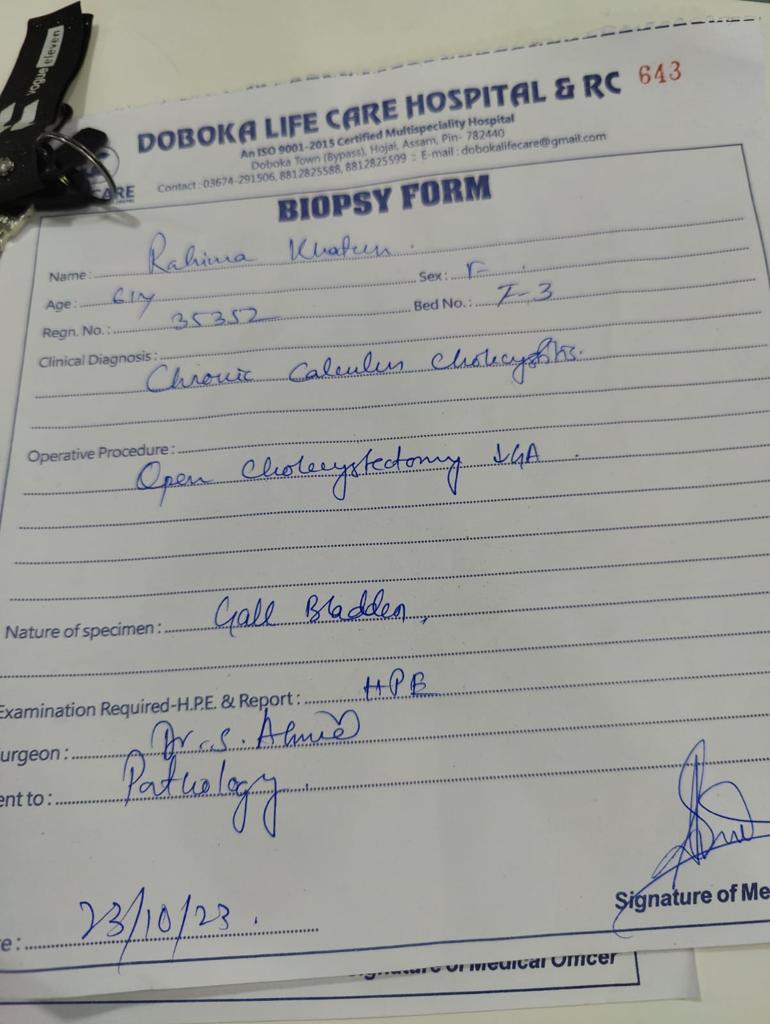 vogue eleven
DOBOKA LIFE CARE HOSPITAL & RC 643
An ISO 9001-2015 Certified Multispeciality Hospital
Doboka Town (Bypass), Hojai, Assam, Pin- 782440
Contact : 03674-291506, 8812825588, 8812825599 :: E-mail : dobokalifecare@gmail.com
CARE
BIOPSY FORM
Name : Rahima Khatun .
Age : 61y Sex : F
Regn. No. : 35352 Bed No. : I-3
Clinical Diagnosis :
Chronic Calculus Cholecystitis.
Operative Procedure :
Open Cholecystectomy ↓GA .
Nature of specimen : Gall Bladder,
Examination Required-H.P.E. & Report : HPE
urgeon : Dr. S. Ahmed
ent to : Pathology .
e : 23/10/23 .
Signature of Me
Signature of Medical Officer